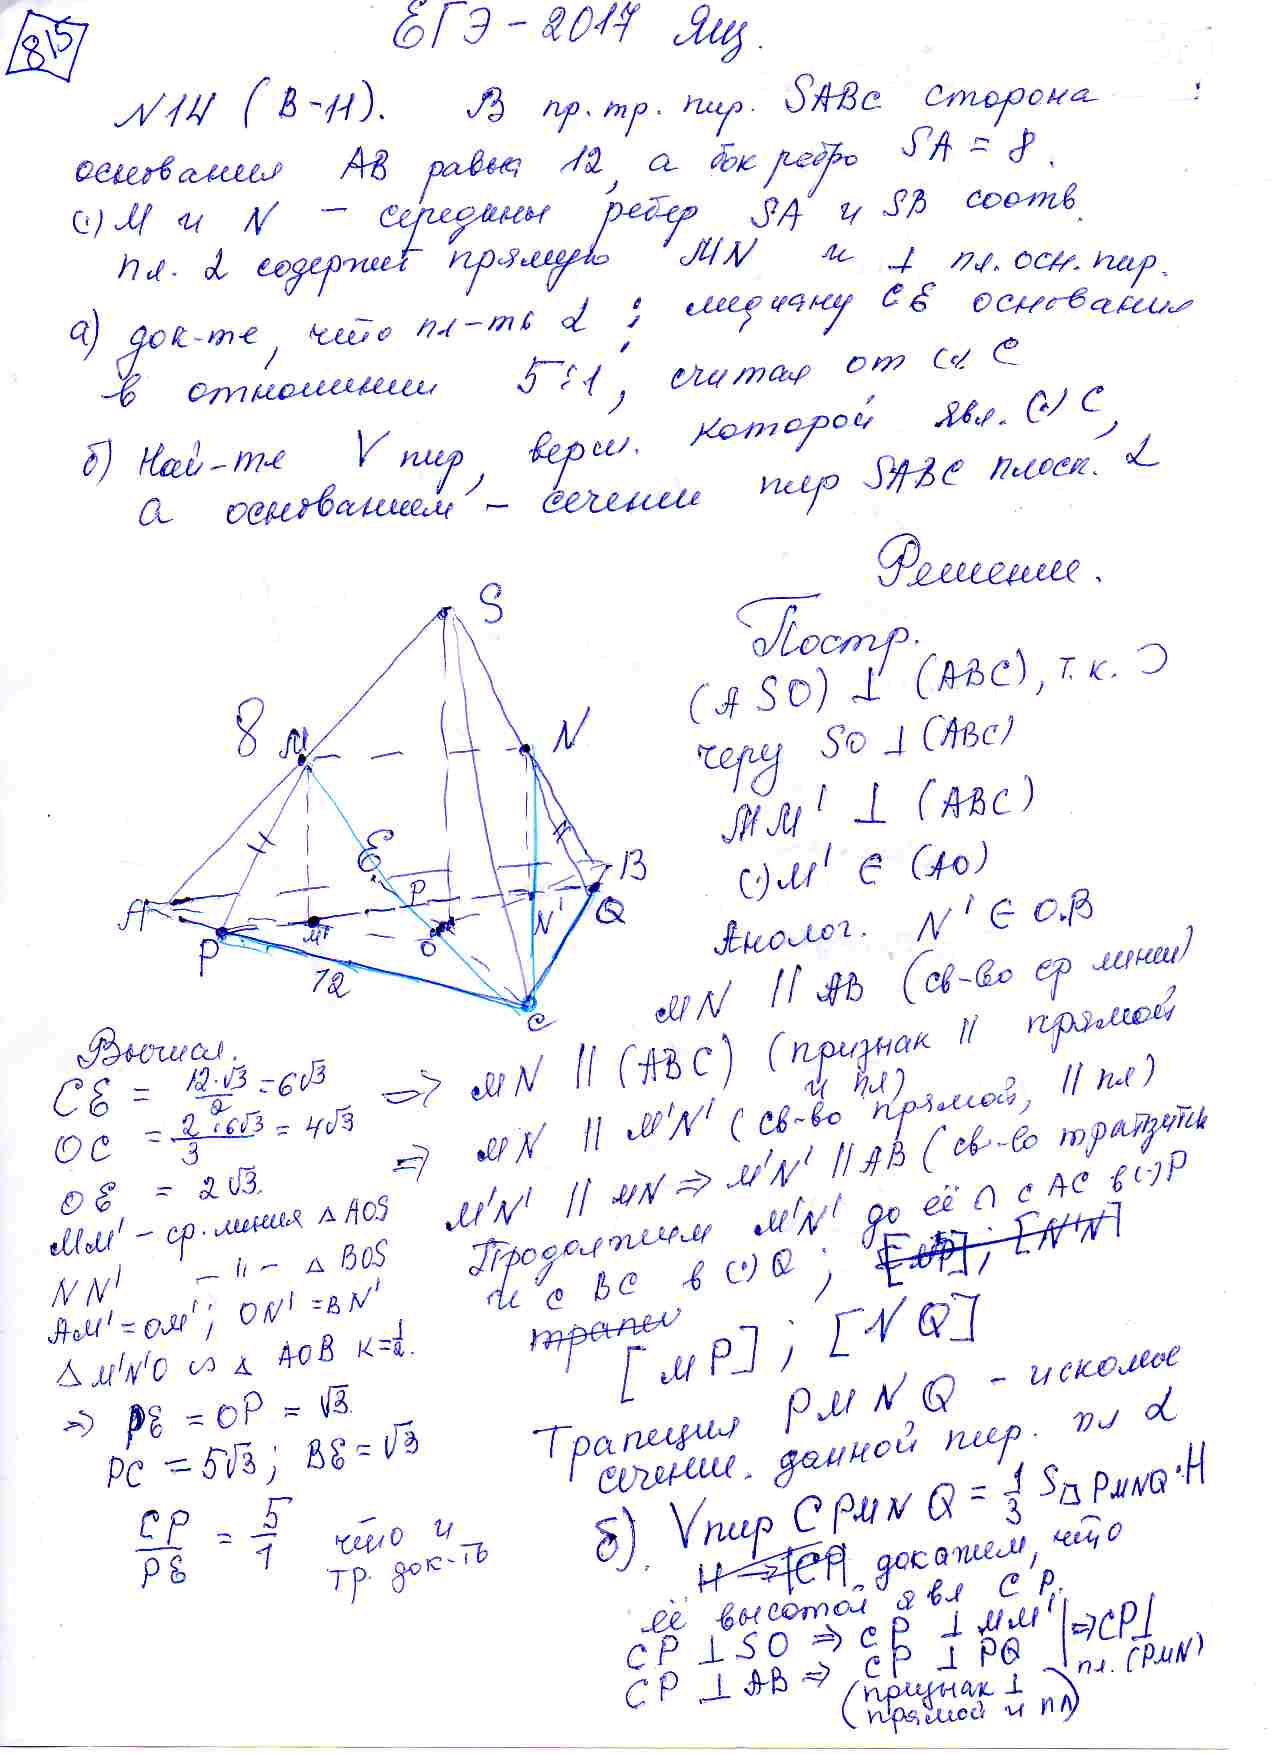 815
ЕГЭ - 2017 Ящ.
N14 (В-11). В пр. тр. пир. SABC сторона
основания AB равна 12, а бок ребро SA = 8.
(·) M и N – середины ребер SA и SB соотв.
Пл. α содержит прямую MN и ⊥ пл. осн. пир.
а) док-те, что пл-ть α ÷ медиану CE основания
в отношении 5:1, считая от (·) C
б) Най-те V пир, верш. которой явл. (·) C,
а основанием – сечение пир SABC плоск. α
Решение.
S
8
M
N
E
P
B
A
M'
O
N'
Q
P
12
C
Постр.
(ASO) ⊥ (ABC), т.к. ⊃
через SO ⊥ (ABC)
MM' ⊥ (ABC)
(·) M' ∈ (AO)
Аналог. N' ∈ OB
MN || AB (св-во ср линии)
=> MN || (ABC) (признак || прямой
и пл)
=> MN || M'N' (св-во прямой, || пл)
M'N' || MN => M'N' || AB (св-во транзитивн
Продолжим M'N' до её ∩ с AC в (·) P
и с BC в (·) Q;
[MP]; [NQ]
Трапеция PMNQ - искомое
сечение данной пир. пл α
Вычисл.
CE = 12·√3/2 = 6√3
OC = 2·6√3/3 = 4√3
OE = 2√3.
MM' – ср. линия △ AOS
NN' – " – △ BOS
AM' = OM'; ON' = BN'
△ M'N'O ∽ △ AOB k = 1/2.
=> PE = OP = √3.
PC = 5√3; BE = √3
CP/PE = 5/1 что и
тр. док-ть
б). Vпир CPMNQ = 1/3 S PMNQ · H
докажем, что
её высотой явл CP.
CP ⊥ SO => CP ⊥ MM'
CP ⊥ AB => CP ⊥ PQ
=> CP ⊥
пл. (PMN)
(признак ⊥
прямой и пл)